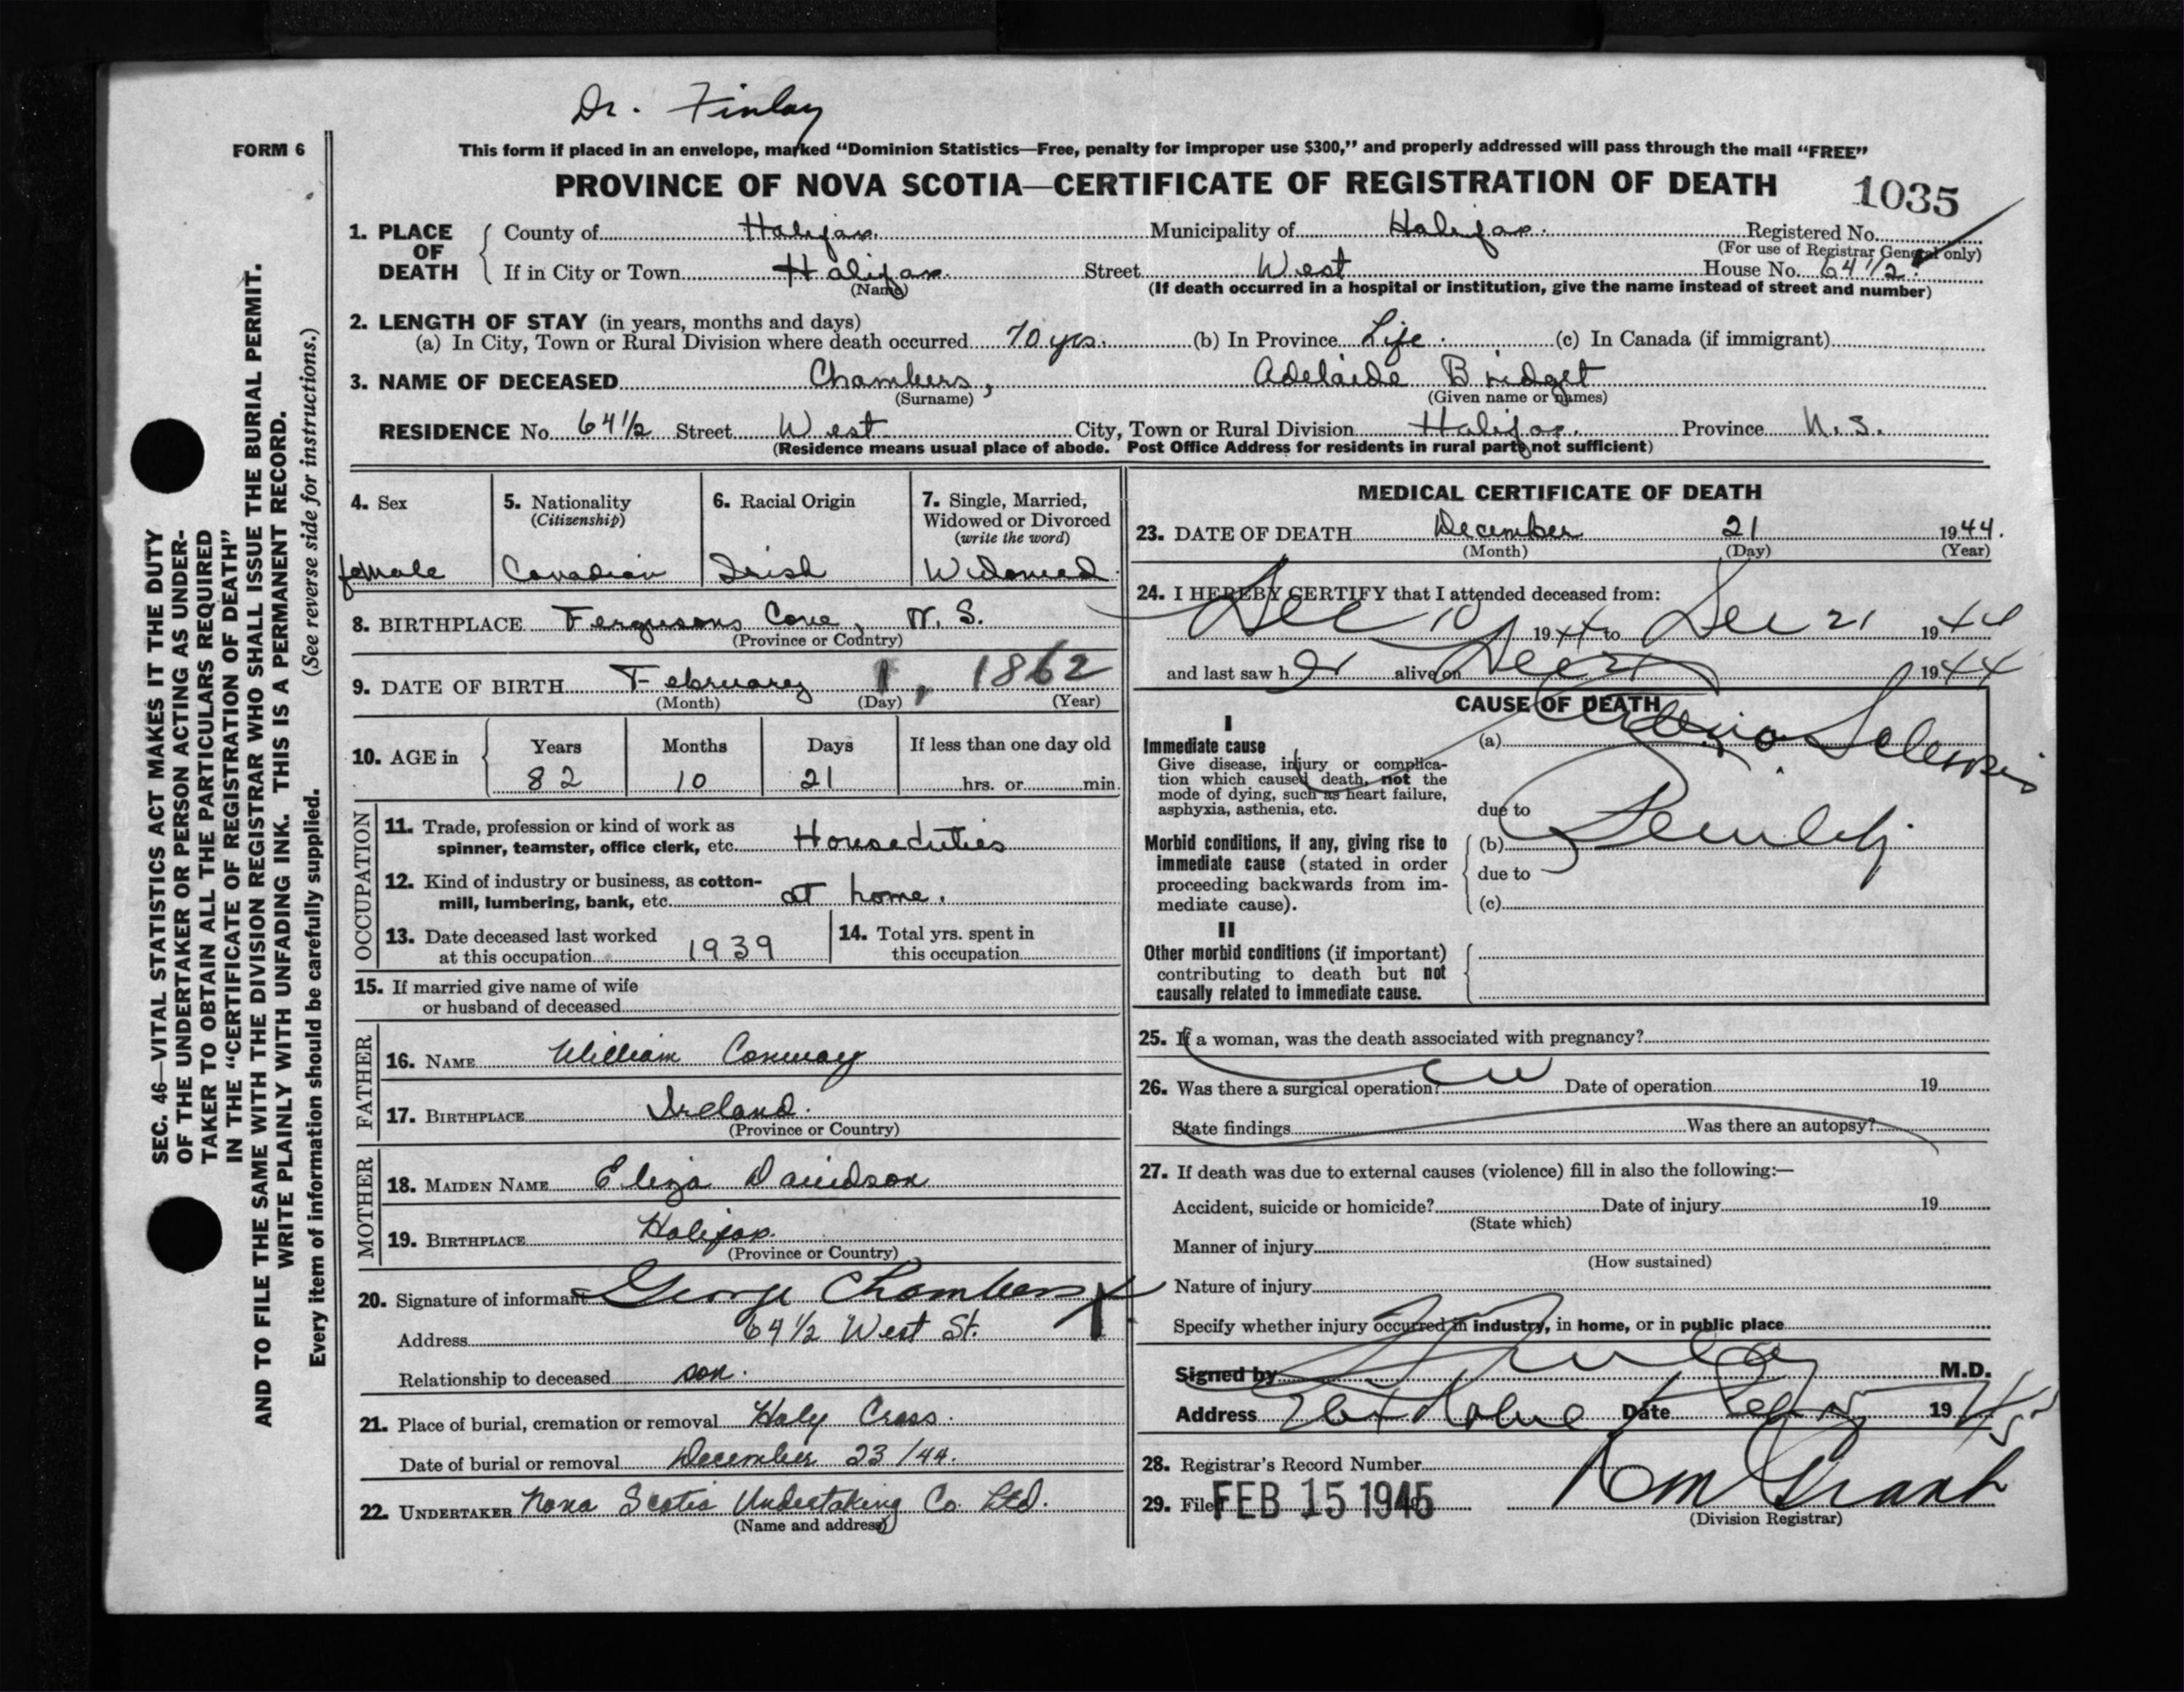 Dr. Finlay
FORM 6
This form if placed in an envelope, marked "Dominion Statistics—Free, penalty for improper use $300," and properly addressed will pass through the mail "FREE"
PROVINCE OF NOVA SCOTIA—CERTIFICATE OF REGISTRATION OF DEATH 1035
1. PLACE OF DEATH County of Halifax Municipality of Halifax. Registered No.
(For use of Registrar General only)
If in City or Town Halifax Street West House No. 64 1/2
(Name) (If death occurred in a hospital or institution, give the name instead of street and number)
2. LENGTH OF STAY (in years, months and days)
(a) In City, Town or Rural Division where death occurred 70 yrs. (b) In Province Life. (c) In Canada (if immigrant)
3. NAME OF DECEASED Chambers, Adelaide Bridget
(Surname) (Given name or names)
RESIDENCE No. 64 1/2 Street West City, Town or Rural Division Halifax. Province N.S.
(Residence means usual place of abode. Post Office Address for residents in rural parts not sufficient)
4. Sex 5. Nationality (Citizenship) 6. Racial Origin 7. Single, Married, Widowed or Divorced (write the word)
female Canadian Irish Widowed
8. BIRTHPLACE Fergusons Cove, N.S.
(Province or Country)
9. DATE OF BIRTH February 1, 1862
(Month) (Day) (Year)
10. AGE in Years Months Days If less than one day old
82 10 21 hrs. or min.
OCCUPATION
11. Trade, profession or kind of work as
spinner, teamster, office clerk, etc. Houseduties
12. Kind of industry or business, as cotton-
mill, lumbering, bank, etc. at home.
13. Date deceased last worked
at this occupation 1939
14. Total yrs. spent in
this occupation
15. If married give name of wife
or husband of deceased
FATHER
16. NAME William Conway
17. BIRTHPLACE Ireland.
(Province or Country)
MOTHER
18. MAIDEN NAME Eliza Davidson
19. BIRTHPLACE Halifax.
(Province or Country)
20. Signature of informant George Chambers X
Address 64 1/2 West St.
Relationship to deceased son.
21. Place of burial, cremation or removal Holy Cross.
Date of burial or removal December 23/44.
22. UNDERTAKER Nova Scotia Undertaking Co. Ltd.
(Name and address)
MEDICAL CERTIFICATE OF DEATH
23. DATE OF DEATH December 21 1944.
(Month) (Day) (Year)
24. I HEREBY CERTIFY that I attended deceased from:
Dec 10 1944 to Dec 21 1944
and last saw her alive on Dec 21 1944
CAUSE OF DEATH
I
Immediate cause
Give disease, injury or complica-
tion which caused death, not the
mode of dying, such as heart failure,
asphyxia, asthenia, etc.
(a)
due to
Morbid conditions, if any, giving rise to
immediate cause (stated in order
proceeding backwards from im-
mediate cause).
(b)
due to
(c)
II
Other morbid conditions (if important)
contributing to death but not
causally related to immediate cause.
25. If a woman, was the death associated with pregnancy?
26. Was there a surgical operation? Date of operation 19
State findings Was there an autopsy?
27. If death was due to external causes (violence) fill in also the following:—
Accident, suicide or homicide? Date of injury 19
(State which)
Manner of injury
(How sustained)
Nature of injury
Specify whether injury occurred in industry, in home, or in public place
Signed by M.D.
Address Date 1945
28. Registrar's Record Number
29. Filed FEB 15 1945
(Division Registrar)
SEC. 46—VITAL STATISTICS ACT MAKES IT THE DUTY
OF THE UNDERTAKER OR PERSON ACTING AS UNDER-
TAKER TO OBTAIN ALL THE PARTICULARS REQUIRED
IN THE "CERTIFICATE OF REGISTRATION OF DEATH"
AND TO FILE THE SAME WITH THE DIVISION REGISTRAR WHO SHALL ISSUE THE BURIAL PERMIT.
WRITE PLAINLY WITH UNFADING INK. THIS IS A PERMANENT RECORD.
Every item of information should be carefully supplied. (See reverse side for instructions.)